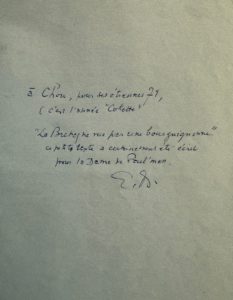 à Chou, pour ses étrennes 79,
(c'est l'année "Colette")
"La Bretagne vue par une bourguignonne"
ce texte a certainement été écrit
pour la Dame de Poul'man.